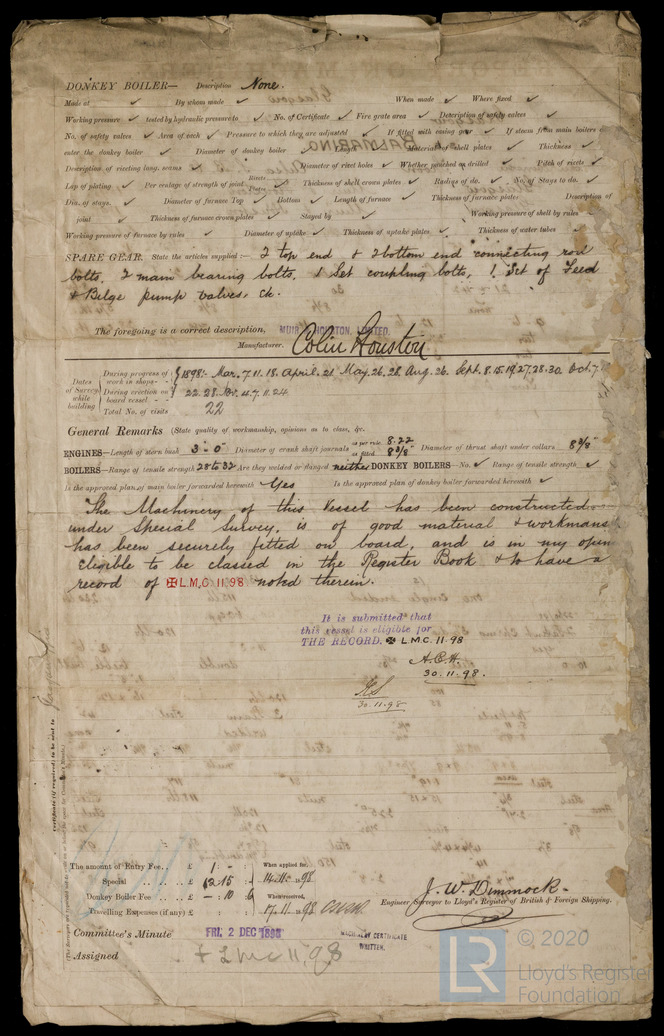 DONKEY BOILER— Description None.
Made at ✓ By whom made ✓ When made ✓ Where fixed ✓
Working pressure ✓ tested by hydraulic pressure to ✓ No. of Certificate ✓ Fire grate area ✓ Description of safety valves ✓
No. of safety valves ✓ Area of each ✓ Pressure to which they are adjusted ✓ If fitted with easing gear ✓ If steam from main boilers
enter the donkey boiler ✓ Diameter of donkey boiler ✓ Length Material of shell plates ✓ Thickness ✓
Description of riveting long. seams ✓ Diameter of rivet holes ✓ Whether punched or drilled ✓ Pitch of rivets ✓
Lap of plating ✓ Per centage of strength of joint Rivets Plates ✓ Thickness of shell crown plates ✓ Radius of do. ✓ No. of Stays to do. ✓
Dia. of stays. ✓ Diameter of furnace Top ✓ Bottom ✓ Length of furnace ✓ Thickness of furnace plates Description of
joint ✓ Thickness of furnace crown plates ✓ Stayed by ✓ Working pressure of shell by rules ✓
Working pressure of furnace by rules ✓ Diameter of uptake ✓ Thickness of uptake plates ✓ Thickness of water tubes ✓
SPARE GEAR. State the articles supplied:— 2 top end & 2 bottom end connecting rod
bolts, 2 main bearing bolts, 1 Set coupling bolts, 1 Set of Feed
& Bilge pump valves. &c.
The foregoing is a correct description, MUIR & HOUSTON, LIMITED.
Manufacturer. Colin Houston
Dates of Survey while building
During progress of work in shops - - 1898:- Mar. 7. 11. 18. April. 21 May. 26. 28. Aug. 26. Sept. 8. 15. 19. 27. 28. 30. Oct. 7.
During erection on board vessel - - 22. 28. Nov. 4. 7. 11. 24
Total No. of visits 22
General Remarks (State quality of workmanship, opinions as to class, &c.
ENGINES—Length of stern bush 3-0 Diameter of crank shaft journals as per rule 8.22 as fitted 8 3/8" Diameter of thrust shaft under collars 8 3/8"
BOILERS—Range of tensile strength 28 to 32 Are they welded or flanged neither DONKEY BOILERS—No. ✓ Range of tensile strength ✓
Is the approved plan of main boiler forwarded herewith Yes Is the approved plan of donkey boiler forwarded herewith ✓
The Machinery of this Vessel has been constructed
under Special Survey, is of good material & workmans
has been securely fitted on board, and is in my opin
eligible to be classed in the Register Book & to have a
record of ✠ L.M.C. 11.98 noted therein.
It is submitted that
this vessel is eligible for
THE RECORD. ✠ L.M.C. 11.98
30.11.98.
30.11.98
Certificate (if required) to be sent to
(The Surveyors are requested not to write on or below the space for Committee's Minute.)
The amount of Entry Fee.. £ 1 : - : When applied for,
Special .. .. .. £ 12 : 15 : 14.11.1898
Donkey Boiler Fee .. .. £ — : 10 : 6 When received,
Travelling Expenses (if any) £ : : 17.11.1898
J. W. Dimmock
Engineer Surveyor to Lloyd's Register of British & Foreign Shipping.
Committee's Minute FRI. 2 DEC 1898
MACHINERY CERTIFICATE
WRITTEN.
Assigned + LMC 11.98
LR © 2020
Lloyd's Register
Foundation